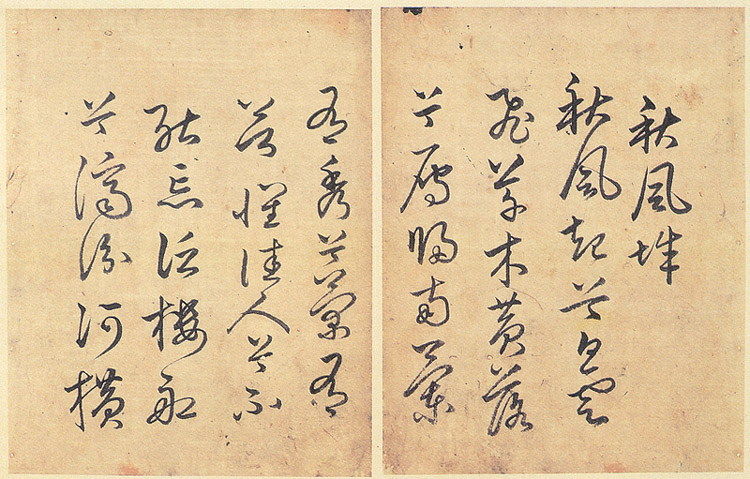 秋風辞
秋風起兮白雲
飛草木黃落
兮雁歸南蘭
有秀兮菊有
芳懷佳人兮不
能忘泛樓船
兮濟汾河橫